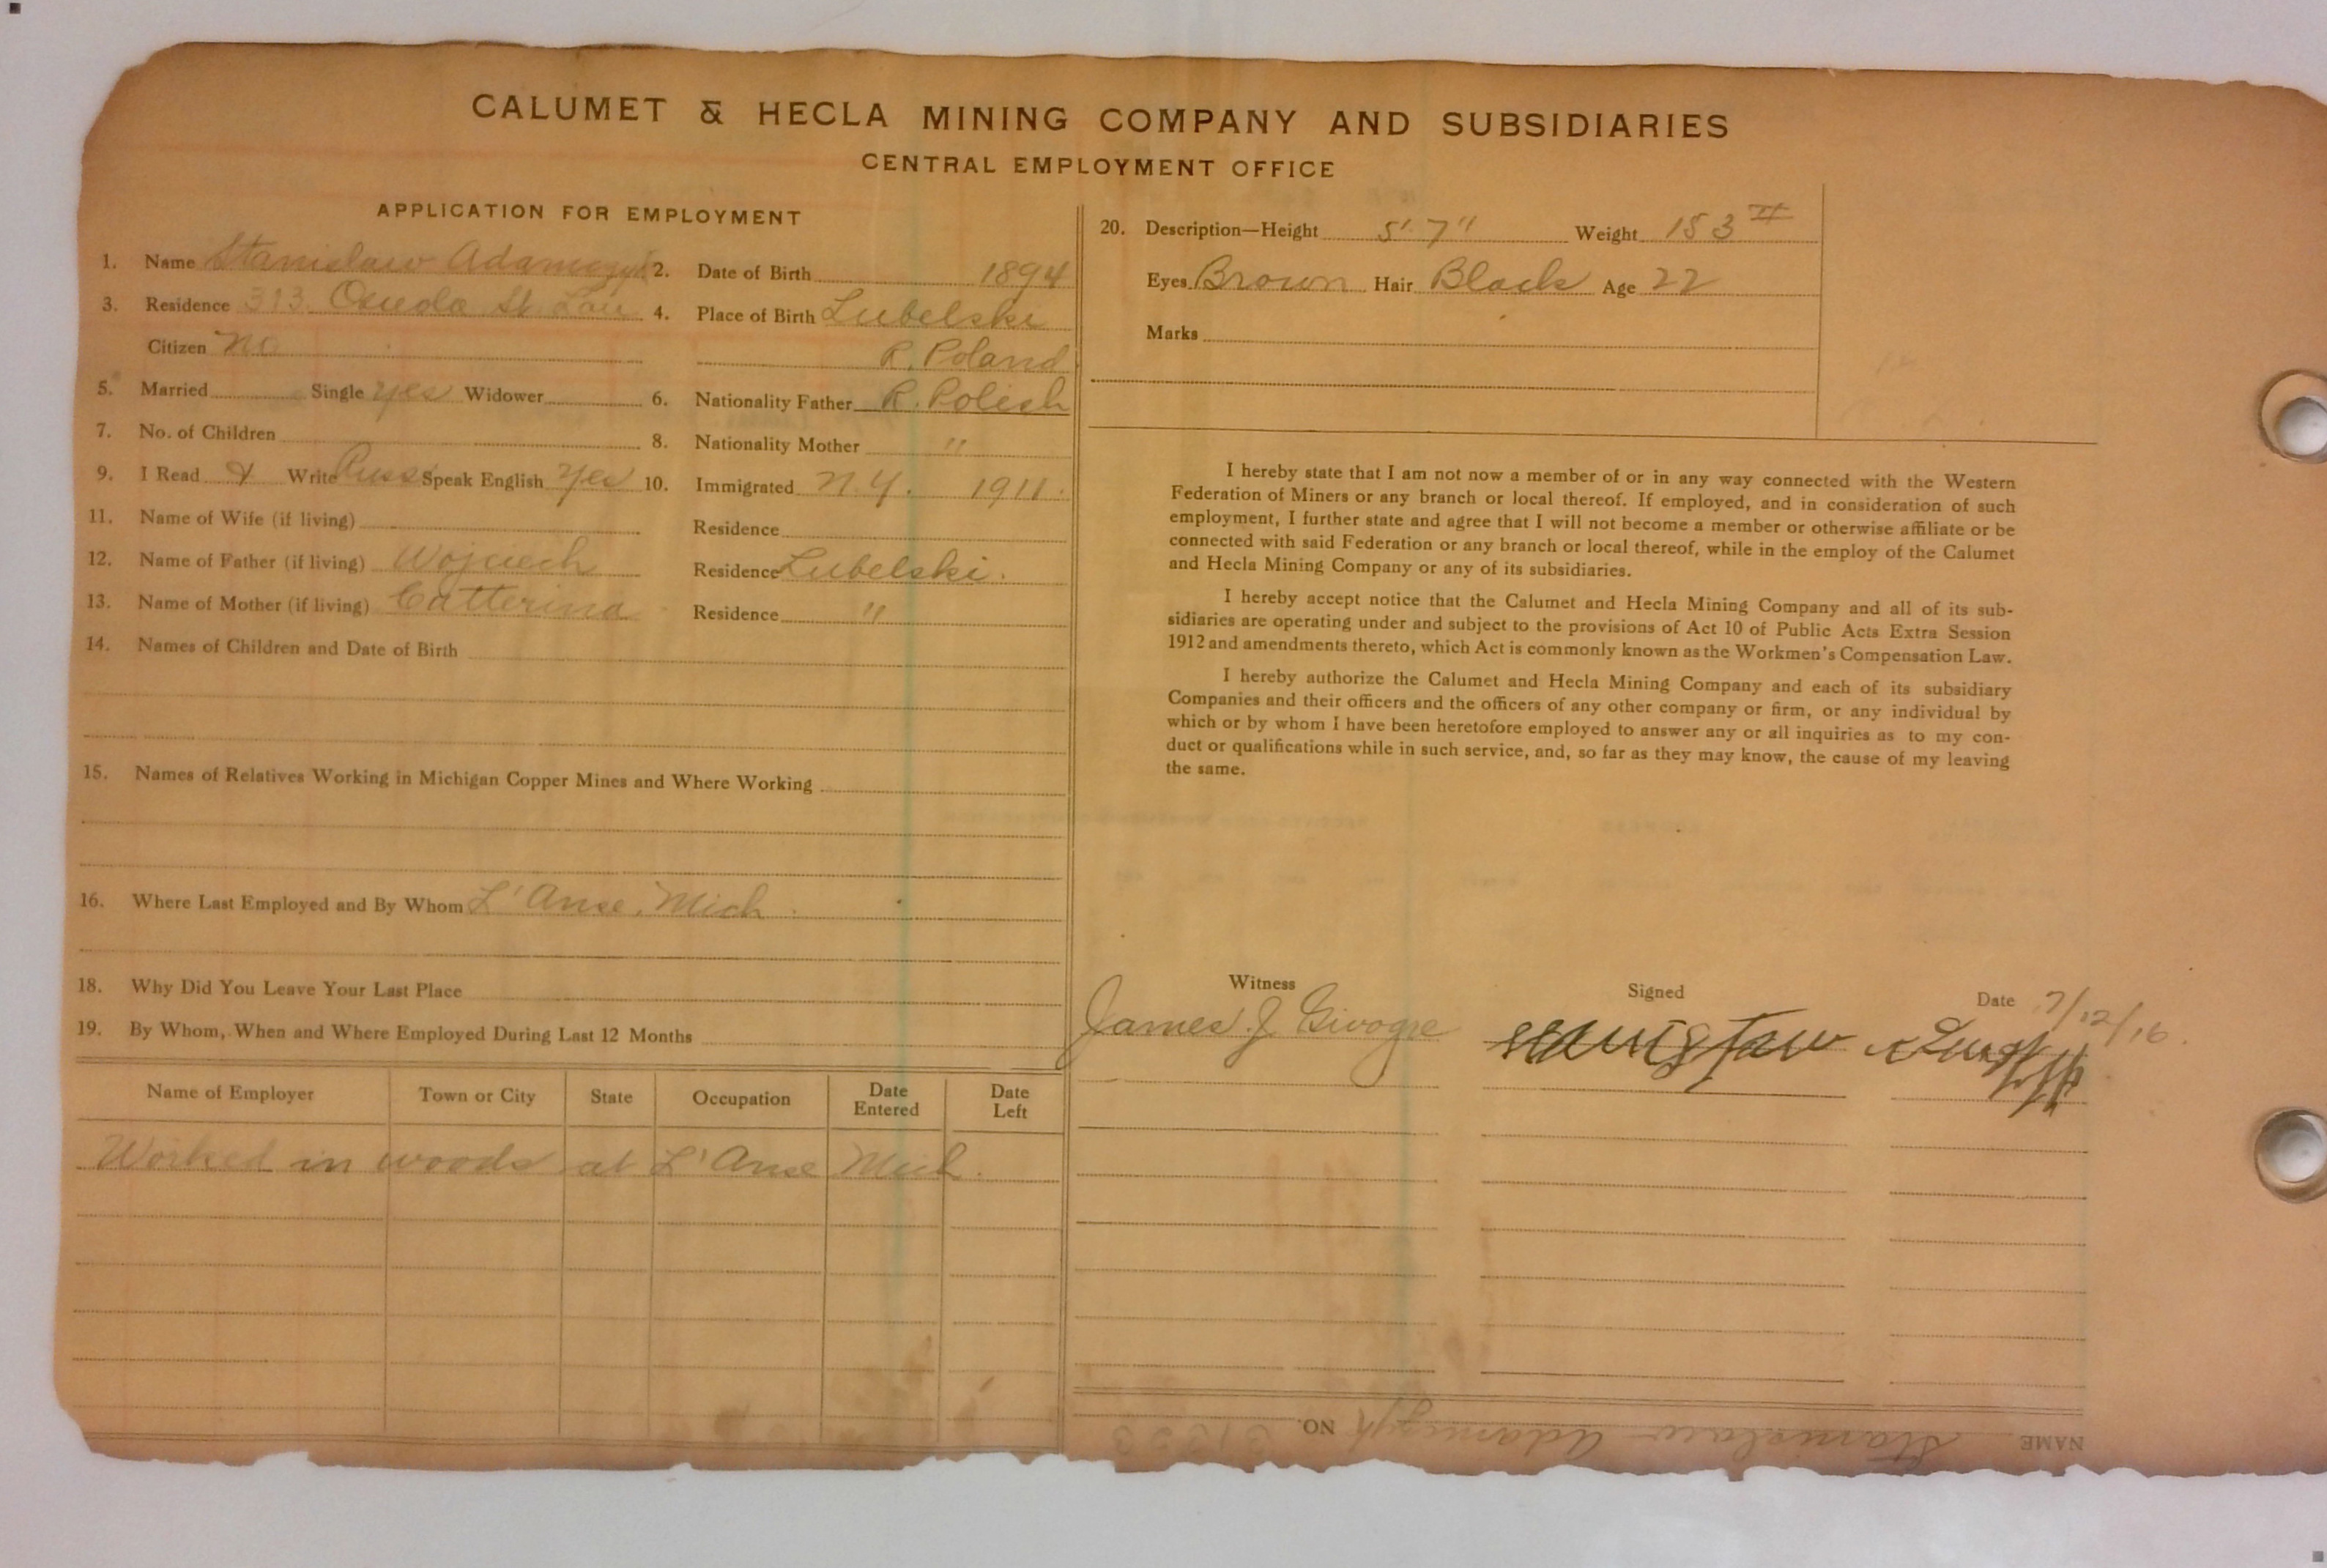 CALUMET & HECLA MINING COMPANY AND SUBSIDIARIES
CENTRAL EMPLOYMENT OFFICE
APPLICATION FOR EMPLOYMENT
1. Name Stanislaw Adamczyk 2. Date of Birth 1894
3. Residence 313 Osceola St. Lau 4. Place of Birth Lubelski
Citizen No R. Poland
5. Married Single yes Widower 6. Nationality Father R. Polish
7. No. of Children 8. Nationality Mother "
9. I Read & Write Russ Speak English Yes 10. Immigrated N.Y. 1911.
11. Name of Wife (if living) Residence
12. Name of Father (if living) Wojciech Residence Lubelski.
13. Name of Mother (if living) Catterina Residence "
14. Names of Children and Date of Birth
15. Names of Relatives Working in Michigan Copper Mines and Where Working
16. Where Last Employed and By Whom L'Anse, Mich.
18. Why Did You Leave Your Last Place
19. By Whom, When and Where Employed During Last 12 Months
Name of Employer Town or City State Occupation Date Entered Date Left
Worked in woods at L'Anse Mich.
20. Description—Height 5' 7" Weight 153 #
Eyes Brown Hair Black Age 22
Marks
I hereby state that I am not now a member of or in any way connected with the Western
Federation of Miners or any branch or local thereof. If employed, and in consideration of such
employment, I further state and agree that I will not become a member or otherwise affiliate or be
connected with said Federation or any branch or local thereof, while in the employ of the Calumet
and Hecla Mining Company or any of its subsidiaries.
I hereby accept notice that the Calumet and Hecla Mining Company and all of its sub-
sidiaries are operating under and subject to the provisions of Act 10 of Public Acts Extra Session
1912 and amendments thereto, which Act is commonly known as the Workmen's Compensation Law.
I hereby authorize the Calumet and Hecla Mining Company and each of its subsidiary
Companies and their officers and the officers of any other company or firm, or any individual by
which or by whom I have been heretofore employed to answer any or all inquiries as to my con-
duct or qualifications while in such service, and, so far as they may know, the cause of my leaving
the same.
Witness Signed Date 7/12/16.
James J.
NAME Stanislaw Adamczyk NO.